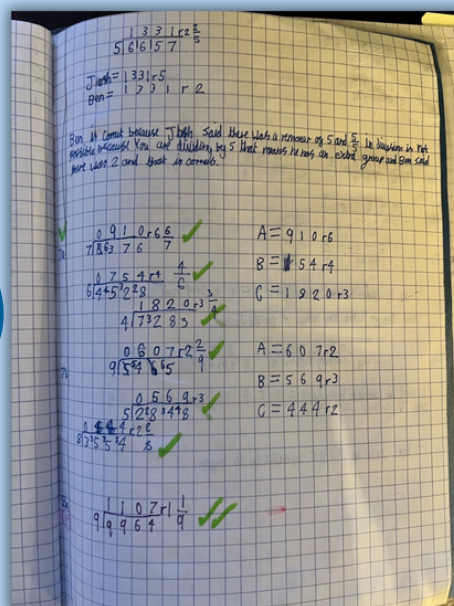 1 3 3 1 r2 2/5
5 6 16 15 7
Josh = 1331 r5
Ben = 1 3 3 1 r 2
Ben is correct because Josh said there was a remainer of 5 and 5/5 in division is not
possible because You are dividing by 5 that means he has an extra group and Ben said
there was 2 and that is correct.
0 9 1 0 r6 6/7
7 6 63 7 6
A = 9 1 0 r6
0 7 5 4 r4 4/6
6 4 45 32 28
B = 754 r4
1 8 2 0 r3 3/4
4 7 32 8 3
C = 1 8 2 0 r3
0 6 0 7 r2 2/9
9 5 54 6 65
A = 6 0 7 r2
0 5 6 9 r3
5 2 28 34 48
B = 5 6 9 r3
0 4 4 4 r2 2/8
8 3 35 35 34
C = 4 4 4 r2
1 1 0 7 r1 1/9
9 9 9 6 4